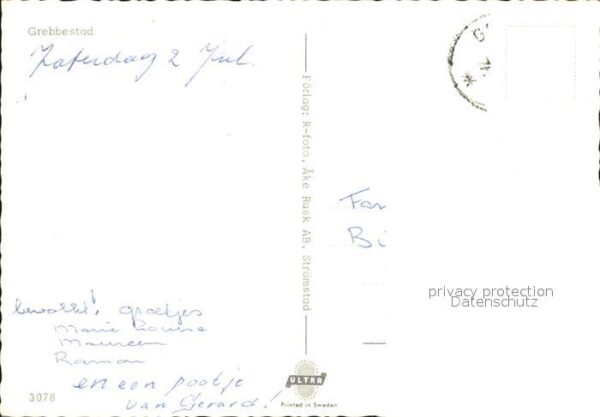 Grebbestad
Zaterdag 2 Jul.
Förlag: R-foto, Åke Rask AB, Strömstad
Fan
Bi
privacy protection
Datenschutz
bewolkt! groetjes
Marie Louise
Maureen
Ramon
en een pootje
van Gerard!
3078
ULTRA
Printed in Sweden